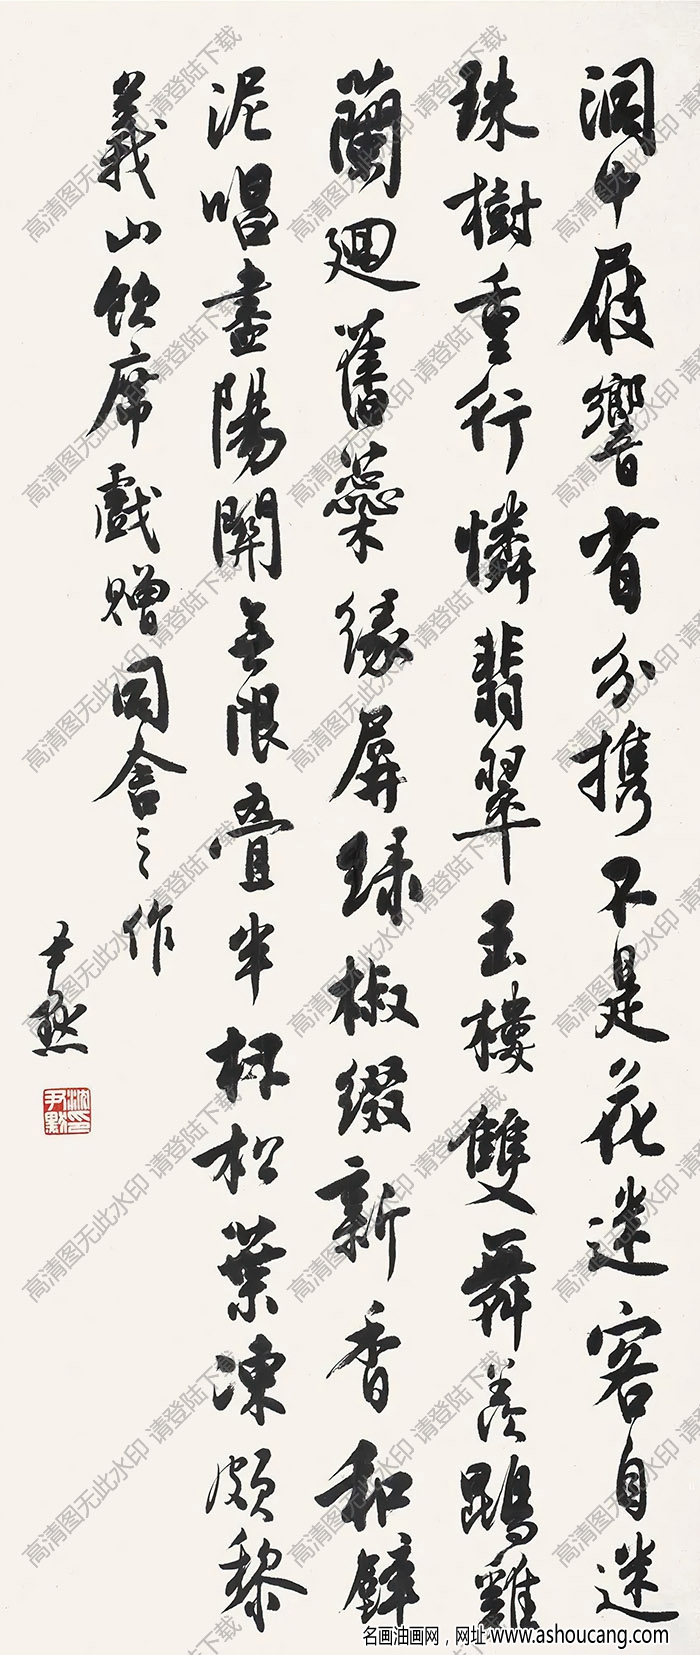 洞中屐響省分携不是花迷客自迷
珠樹重行憐翡翠玉樓雙舞羨鵾雞
蘭迴舊蘂緣屏緑椒綴新香和壁
泥唱盡陽關无限叠半杯松葉凍頗黎
義山飲席戲贈同舍之作
尹默
沈尹默印
高清图无此水印 请登陆下载
名画油画网，网址 www.ashoucang.com